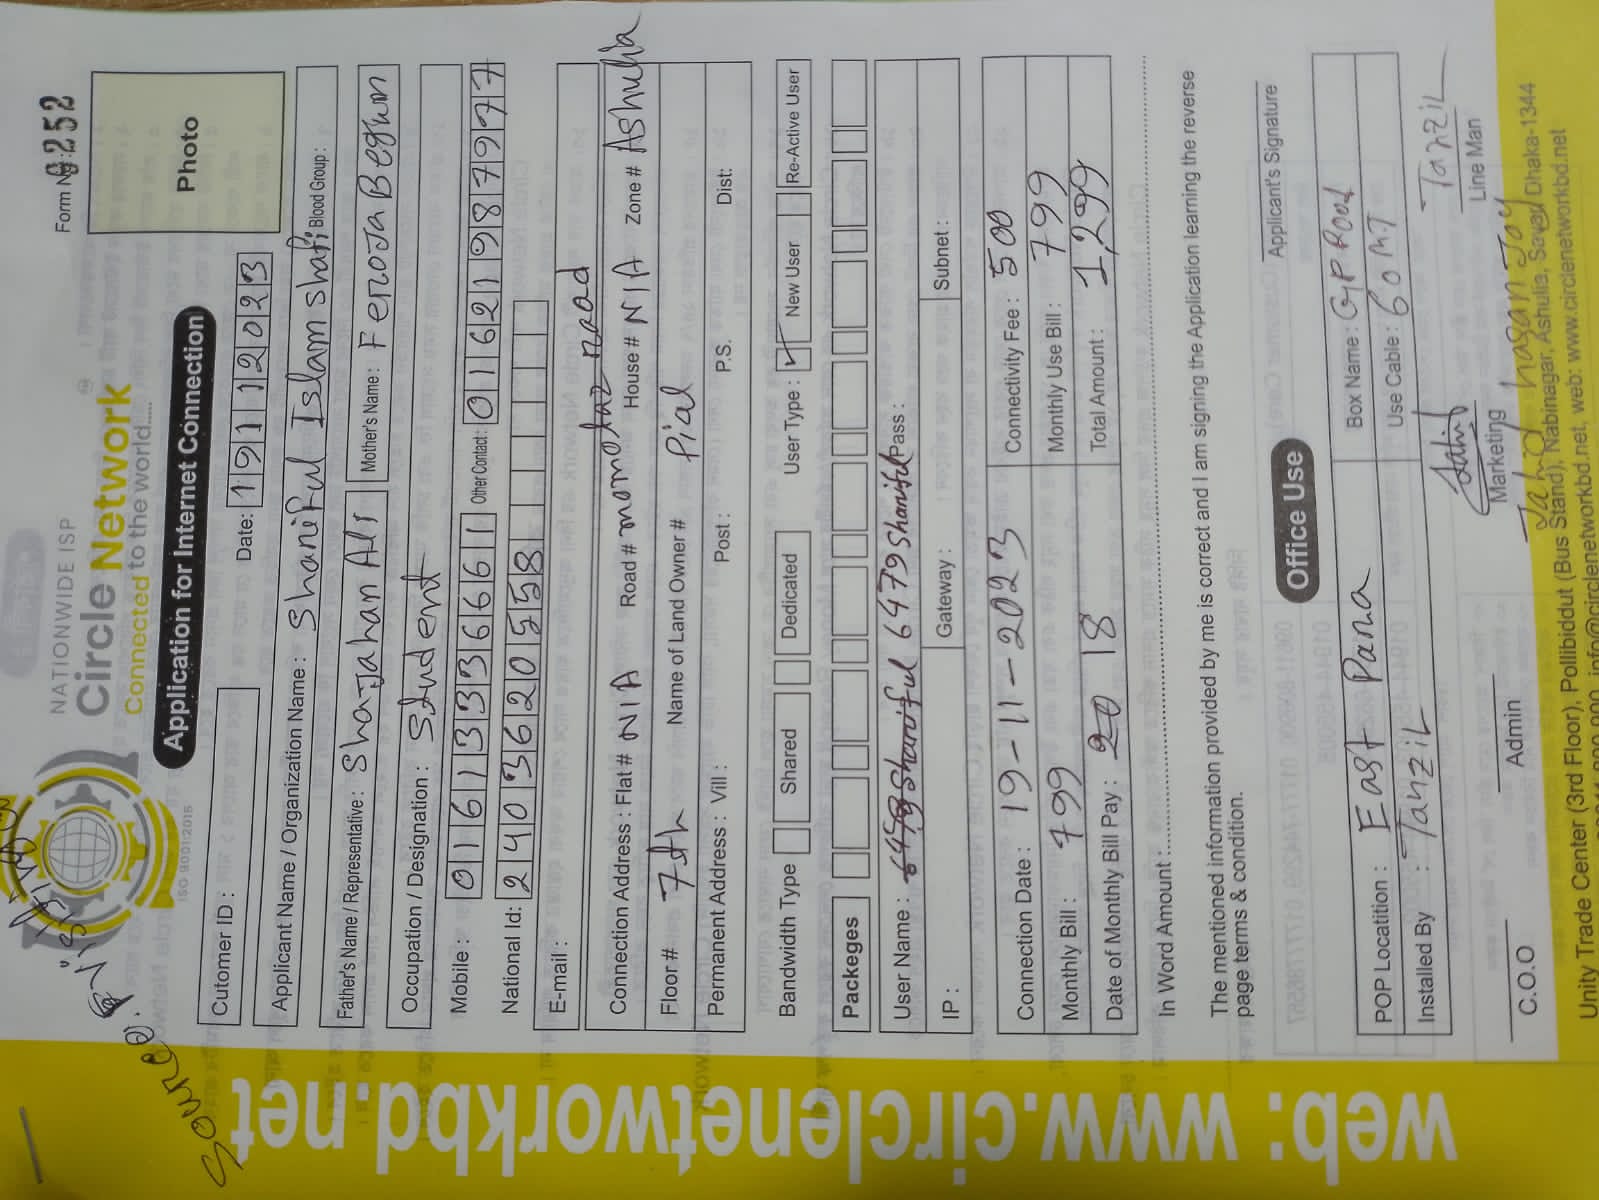 Source
Form No: 9252
NATIONWIDE ISP
Circle Network
Connected to the world......
ISO 9001:2015
Photo
Application for Internet Connection
Cutomer ID :
Date: 19112023
Applicant Name / Organization Name : Shariful Islam Shafi Blood Group :
Father's Name / Representative : Shajahan Ali Mother's Name : Feroja Begum
Occupation / Designation : Student
Mobile : 01613336661 Other Contact: 01621987977
National Id: 2403620558
E-mail :
Connection Address : Flat # N/A Road # momotaz road House # N/A Zone # Ashulia
Floor # 7th Name of Land Owner # Pial
Permanent Address : Vill : Post : P.S. Dist:
Bandwidth Type Shared Dedicated User Type : New User Re-Active User
Packeges
User Name : 6479shariful Pass :
IP : Gateway : Subnet :
Connection Date : 19-11-2023 Connectivity Fee : 500
Monthly Bill : 799 Monthly Use Bill : 799
Date of Monthly Bill Pay : 20 18 Total Amount : 1,299
In Word Amount :
The mentioned information provided by me is correct and I am signing the Application learning the reverse
page terms & condition.
Applicant's Signature
Office Use
POP Locatition : East Para Box Name : GP Road
Installed By : Tanzil Use Cable : 60 MT
Tanzil
C.O.O Admin Marketing Line Man
Jahid hasan Joy
Unity Trade Center (3rd Floor), Pollibiddut (Bus Stand), Nabinagar, Ashulia, Savar, Dhaka-1344
info@circlenetworkbd.net, web: www.circlenetworkbd.net
web: www.circlenetworkbd.net